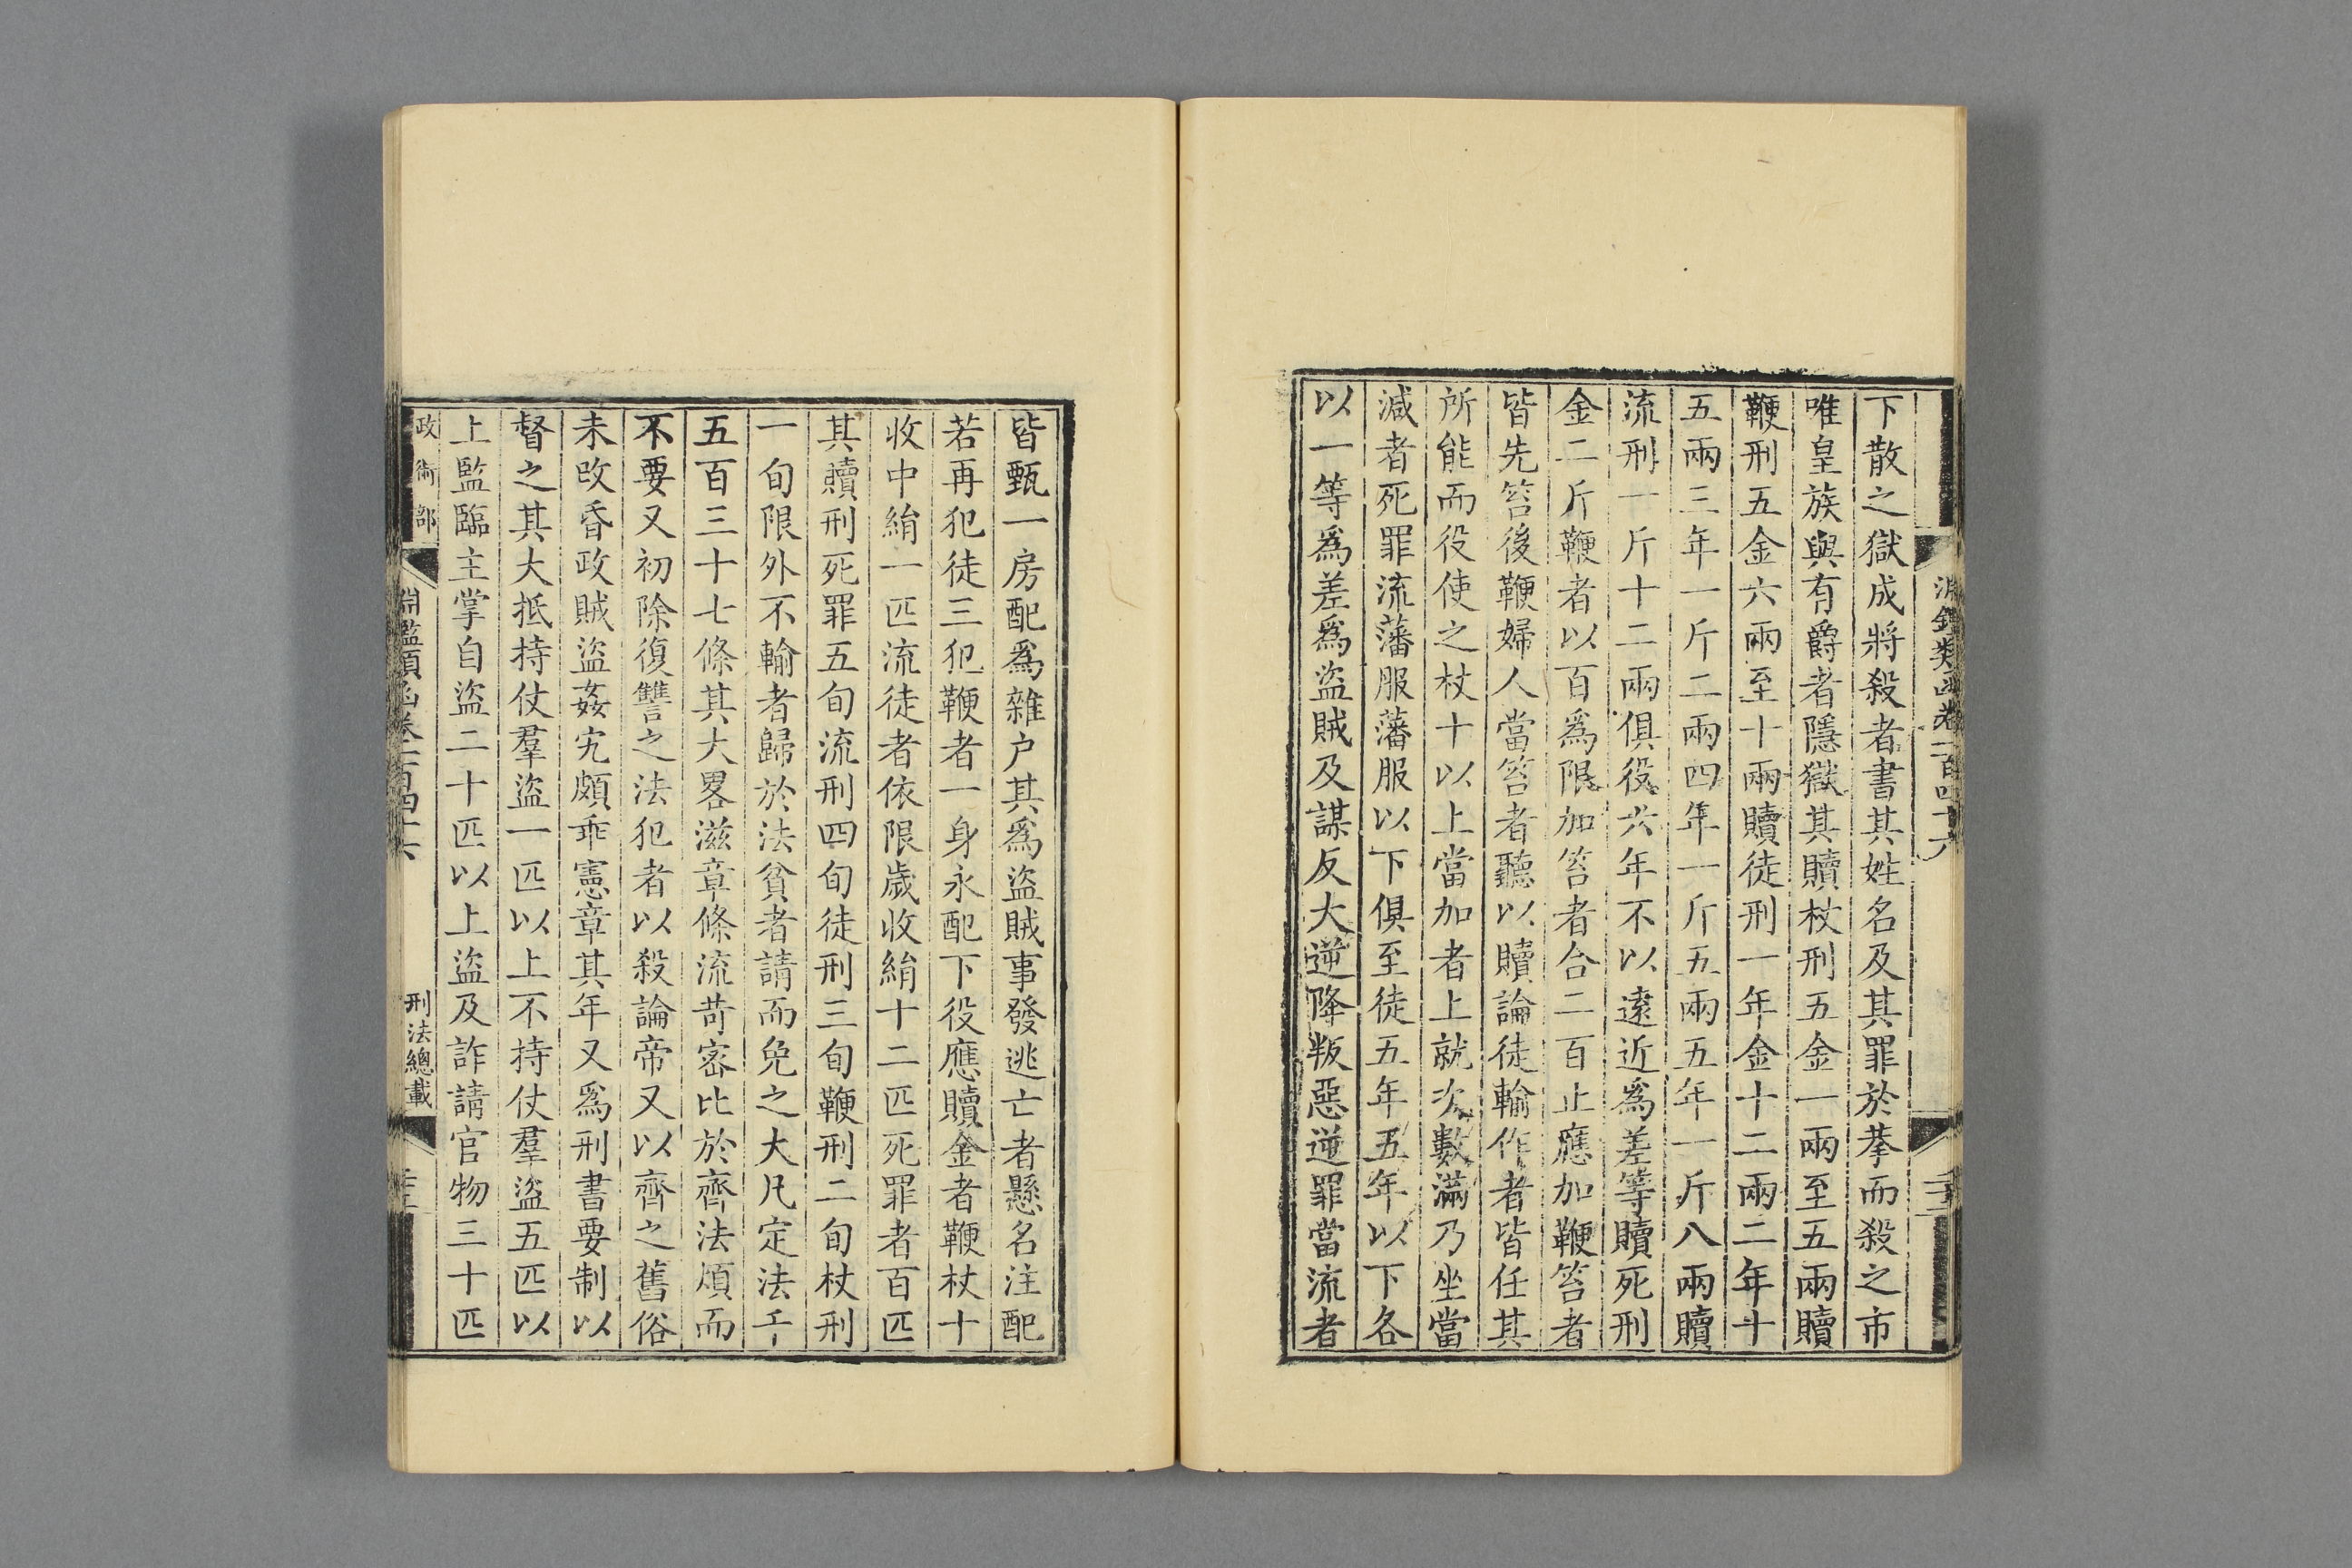 淵鑑類函卷二百四十六
下散之獄成將殺者書其姓名及其罪於拲而殺之市
唯皇族與有爵者隱獄其贖杖刑五金一兩至五兩贖
鞭刑五金六兩至十兩贖徒刑一年金十二兩二年十
五兩三年一斤二兩四年一斤五兩五年一斤八兩贖
流刑一斤十二兩俱役六年不以遠近爲差等贖死刑
金二斤鞭者以百爲限加笞者合二百止應加鞭笞者
皆先笞後鞭婦人當笞者聽以贖論徒輸作者皆任其
所能而役使之杖十以上當加者上就次數滿乃坐當
減者死罪流藩服藩服以下俱至徒五年五年以下各
以一等爲差爲盜賊及謀反大逆降叛惡逆罪當流者
皆甄一房配爲雜户其爲盜賊事發逃亡者懸名注配
若再犯徒三犯鞭者一身永配下役應贖金者鞭杖十
收中絹一匹流徒者依限歲收絹十二匹死罪者百匹
其贖刑死罪五旬流刑四旬徒刑三旬鞭刑二旬杖刑
一旬限外不輸者歸於法貧者請而免之大凡定法千
五百三十七條其大畧滋章條流苛密比於齊法煩而
不要又初除復讐之法犯者以殺論帝又以齊之舊俗
未改昏政賊盜姦宄頗乖憲章其年又爲刑書要制以
督之其大抵持仗羣盜一匹以上不持仗羣盜五匹以
上監臨主掌自盜二十匹以上盜及詐請官物三十匹
政術部
淵鑑類函卷二百四十六
刑法總載